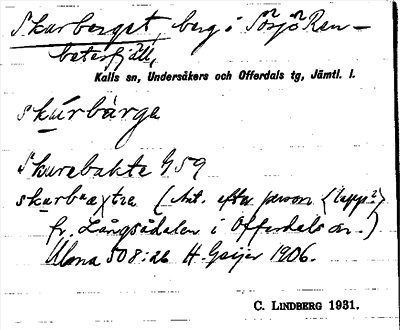 Skurberget, berg i Sösjö Ren-
beterfjäll,
Kalls sn, Undersåkers och Offerdals tg, Jämtl. l.
skúrbàrge
Skurebakte 459
(Ant. efter person (lapp?)
fr. Långsådalen i Offerdals sn.)
Ulma 508:26 H. Geijer 1906.
C. LINDBERG 1931.